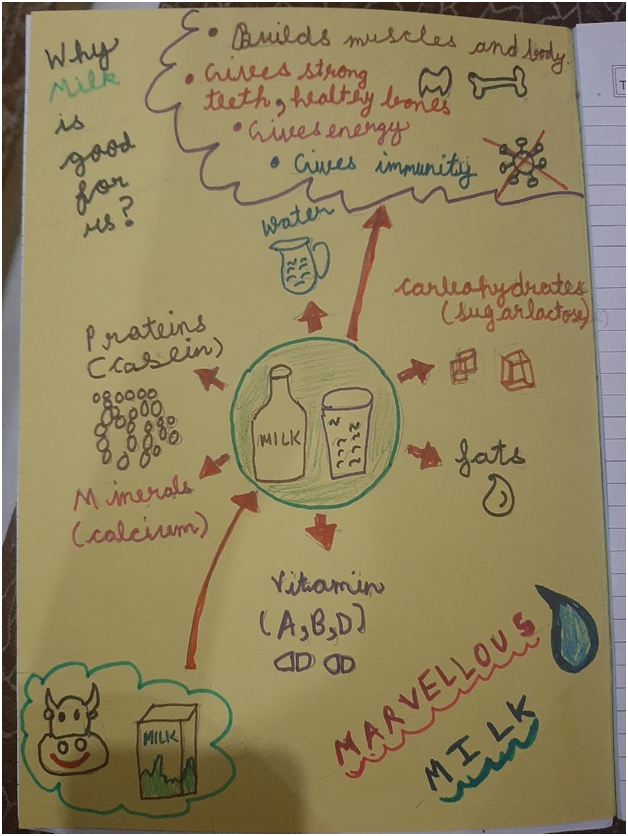 Why
Milk
is
good
for
us?
• Builds muscles and body.
• Gives strong
teeth, healthy bones
• Gives energy
• Gives immunity
Water
Carbohydrates
(sugarlactose)
Proteins
(Casein)
MILK
fats
Minerals
(calcium)
Vitamin
(A,B,D)
MILK
MARVELLOUS
MILK
T